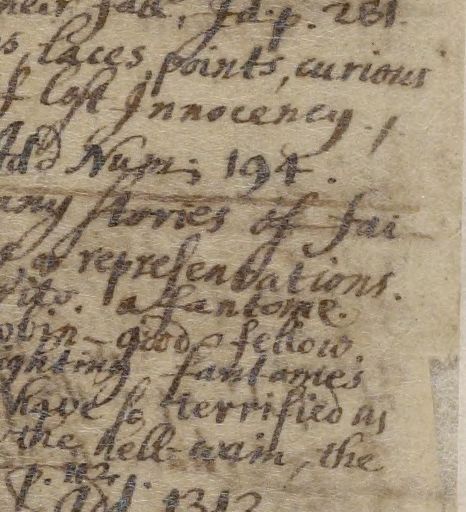 their fall, Id. p. 281.
s, laces, points, curious
of lost Innocency.
Num; 194.
any stories of fai
representations.
a fantome.
obin-good fellow.
ighting fantomes
have so terrified us
the hell-wain, the
p. 112.
1312